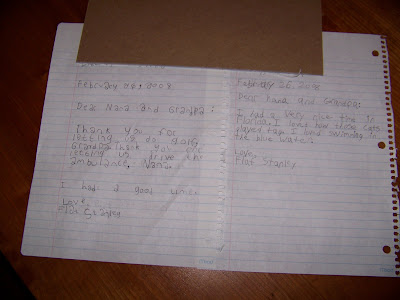 February 2008
Dear Nana and Grandpa:
Thank you for
letting us do golf,
Grandpa. Thank you for
letting us drive the
ambulance, Nana.
I had a good time.
Love,
Flat Stanley
February 26, 2008
Dear nana and Grandpa:
I had a very nice time in
Florida. I loved how those cats
played tag. I loved swimming in
the blue water.
Love,
Flat Stanley